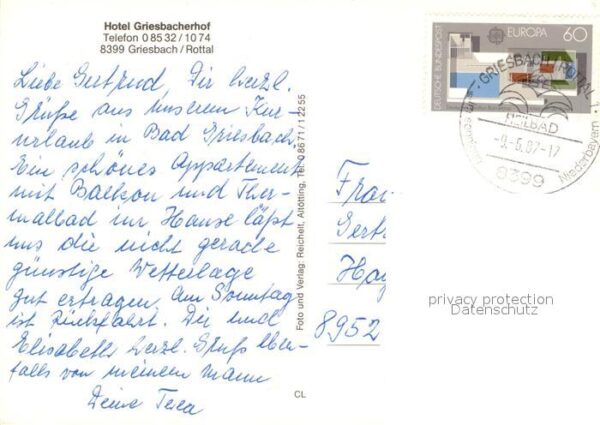 Hotel Griesbacherhof
Telefon 0 85 32 / 10 74
8399 Griesbach / Rottal
Liebe Gertrud, Dir herzl.
Grüße aus unserem Kur-
urlaub in Bad Griesbach.
Ein schönes Appartement
mit Balkon und Ther-
malbad im Hause läßt
uns die nicht gerade
günstige Wetterlage
gut ertragen. Am Sonntag
ist Rückfahrt. Dir und
Elisabeth herzl. Gruß eben-
falls von meinem Mann
Deine
CL
Foto und Verlag: Reichelt, Altötting, Tel. 0 86 71 / 1 22 55
DEUTSCHE BUNDESPOST
EUROPA 60
GRIESBACH I ROTTAL
HEILBAD
-9.-6.87-17
8399
Niederbayern
Frau
Gert
Ha
8952
privacy protection
Datenschutz